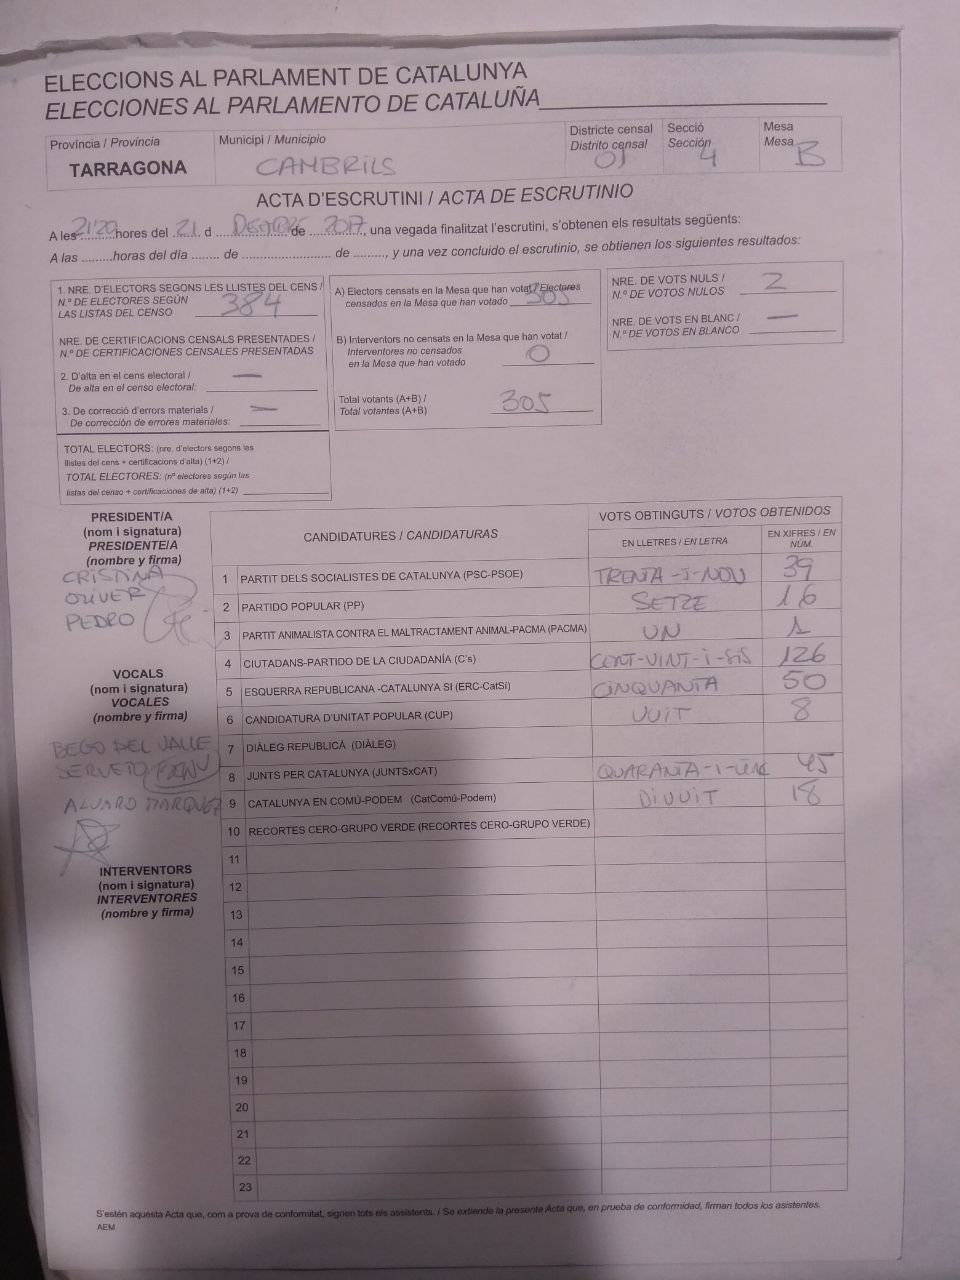 ELECCIONS AL PARLAMENT DE CATALUNYA
ELECCIONES AL PARLAMENTO DE CATALUÑA
Província / Provincia
TARRAGONA
Municipi / Municipio
CAMBRILS
Districte censal
Distrito censal
01
Secció
Sección
4
Mesa
Mesa
B
ACTA D'ESCRUTINI / ACTA DE ESCRUTINIO
A les 21'20 hores del 21 d DESEMBRE de 2017, una vegada finalitzat l'escrutini, s'obtenen els resultats següents:
A las .........horas del día ........ de ........................ de .........., y una vez concluido el escrutinio, se obtienen los siguientes resultados:
1. NRE. D'ELECTORS SEGONS LES LLISTES DEL CENS /
N.º DE ELECTORES SEGÚN
LAS LISTAS DEL CENSO 384
NRE. DE CERTIFICACIONS CENSALS PRESENTADES /
N.º DE CERTIFICACIONES CENSALES PRESENTADAS
2. D'alta en el cens electoral / —
De alta en el censo electoral:
3. De correcció d'errors materials / —
De corrección de errores materiales:
TOTAL ELECTORS: (nre. d'electors segons les
llistes del cens + certificacions d'alta) (1+2) /
TOTAL ELECTORES: (nº electores según las
listas del censo + certificaciones de alta) (1+2)
A) Electors censats en la Mesa que han votat / Electores
censados en la Mesa que han votado 305
B) Interventors no censats en la Mesa que han votat /
Interventores no censados
en la Mesa que han votado 0
Total votants (A+B) /
Total votantes (A+B) 305
NRE. DE VOTS NULS /
N.º DE VOTOS NULOS 2
NRE. DE VOTS EN BLANC /
N.º DE VOTOS EN BLANCO —
PRESIDENT/A
(nom i signatura)
PRESIDENTE/A
(nombre y firma)
CRISTINA
OLIVER
PEDRO
VOCALS
(nom i signatura)
VOCALES
(nombre y firma)
BEGO DEL VALLE
SERVETO
ALVARO MARQUEZ
INTERVENTORS
(nom i signatura)
INTERVENTORES
(nombre y firma)
CANDIDATURES / CANDIDATURAS
VOTS OBTINGUTS / VOTOS OBTENIDOS
EN LLETRES / EN LETRA
EN XIFRES / EN NÚM.
1 PARTIT DELS SOCIALISTES DE CATALUNYA (PSC-PSOE) TRENTA-I-NOU 39
2 PARTIDO POPULAR (PP) SETZE 16
3 PARTIT ANIMALISTA CONTRA EL MALTRACTAMENT ANIMAL-PACMA (PACMA) UN 1
4 CIUTADANS-PARTIDO DE LA CIUDADANÍA (C's) CENT-VINT-I-SIS 126
5 ESQUERRA REPUBLICANA -CATALUNYA SI (ERC-CatSí) CINQUANTA 50
6 CANDIDATURA D'UNITAT POPULAR (CUP) VUIT 8
7 DIÀLEG REPUBLICÀ (DIÀLEG)
8 JUNTS PER CATALUNYA (JUNTSxCAT) QUARANTA-I-CINC 45
9 CATALUNYA EN COMÚ-PODEM (CatComú-Podem) DIVUIT 18
10 RECORTES CERO-GRUPO VERDE (RECORTES CERO-GRUPO VERDE)
11
12
13
14
15
16
17
18
19
20
21
22
23
S'estén aquesta Acta que, com a prova de conformitat, signen tots els assistents. / Se extiende la presente Acta que, en prueba de conformidad, firman todos los asistentes.
AEM